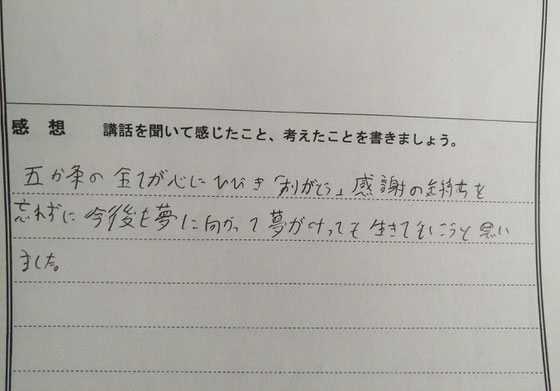 感想 講話を聞いて感じたこと、考えたことを書きましょう。
五か条の全てが心にひびき「ありがとう」感謝の気持ちを
忘れずに今後も夢に向かって夢がかなっても生きていこうと思い
ました。